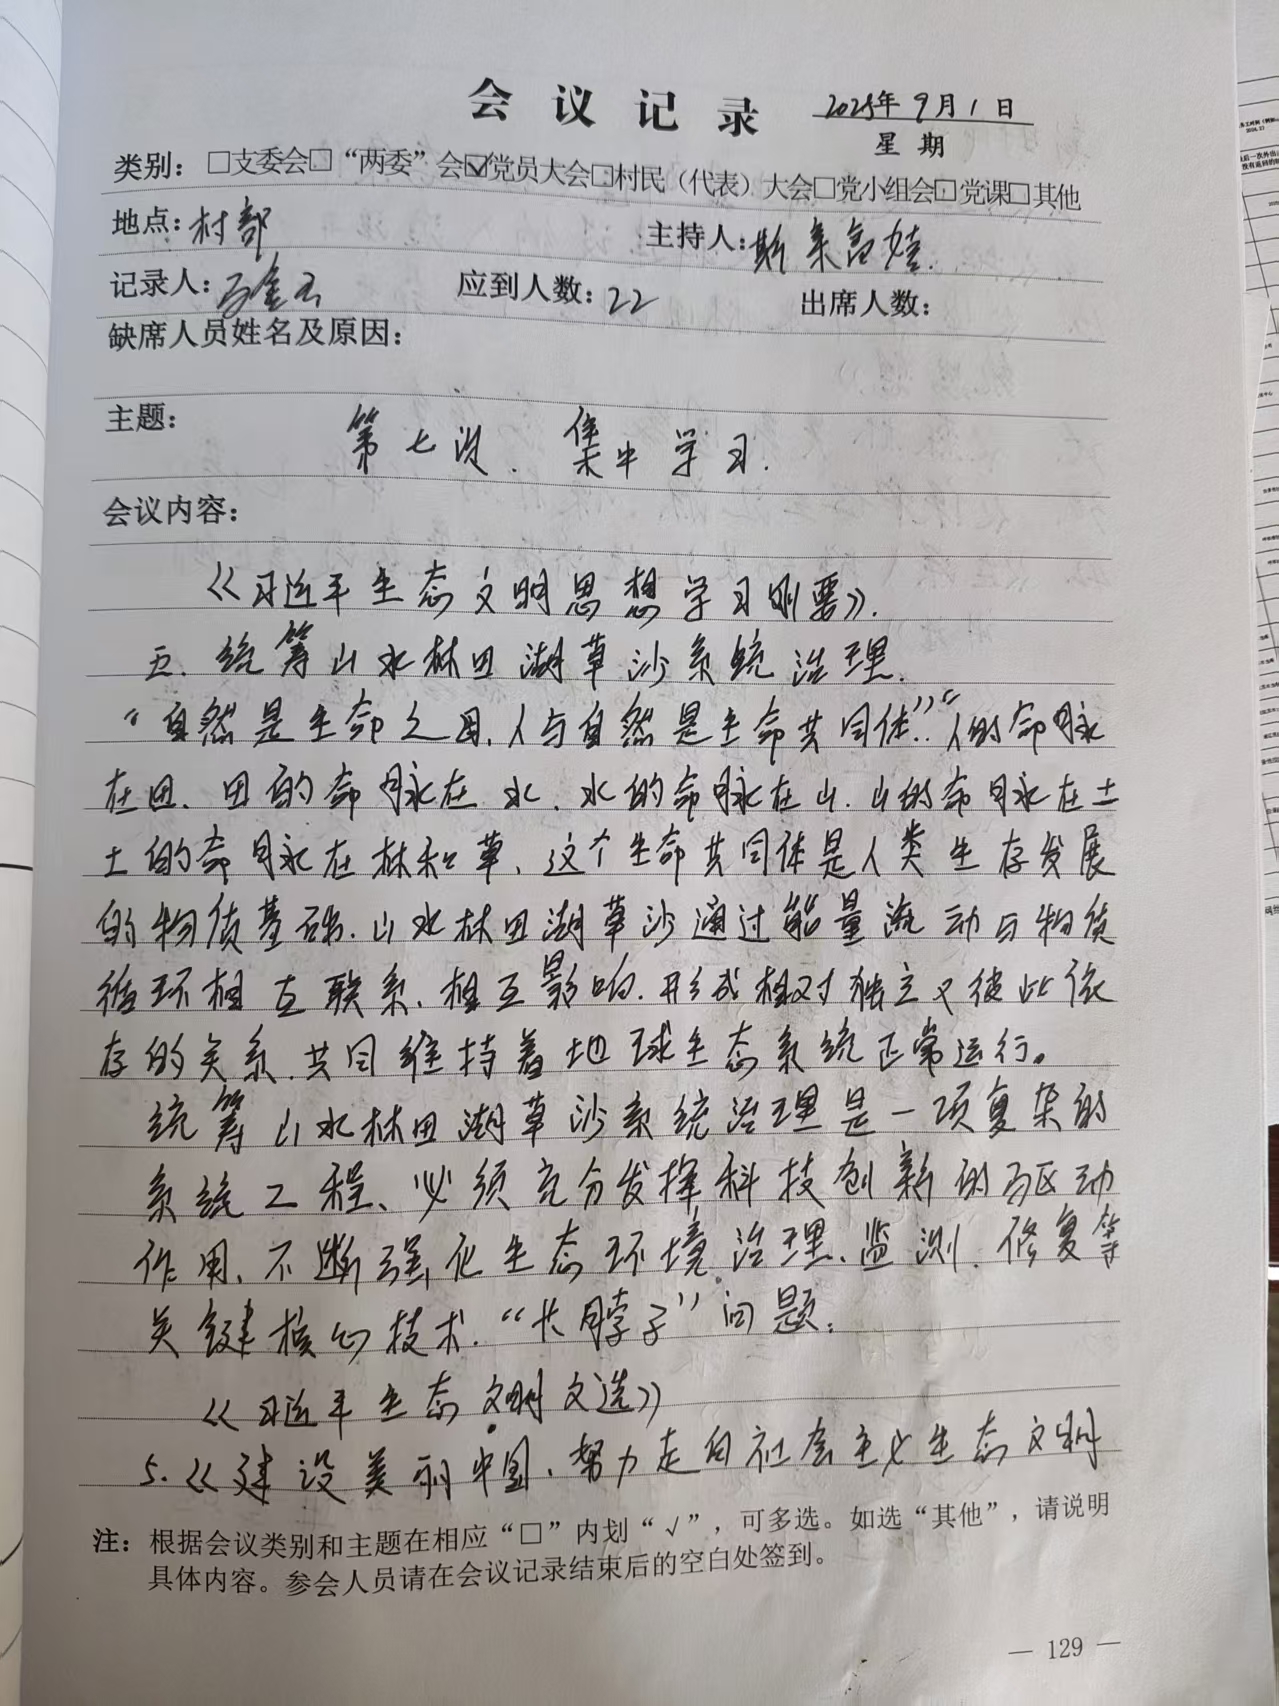 会议记录 2025年9月1日
星期
类别：□支委会□“两委”会☑党员大会□村民（代表）大会□党小组会□党课□其他
地点：村部 主持人：斯
记录人： 应到人数：22 出席人数：
缺席人员姓名及原因：
主题： 第七次、集中学习.
会议内容：
《习近平生态文明思想学习刚要》.
五、统筹山水林田湖草沙系统治理.
“自然是生命之母、人与自然是生命共同体”“人的命脉
在田、田的命脉在水、水的命脉在山、山的命脉在土
土的命脉在林和草、这个生命共同体是人类生存发展
的物质基础.山水林田湖草沙通过能量流动与物质
循环相互联系、相互影响.形成相对独立又彼此依
存的关系.共同维持着地球生态系统正常运行。
统筹山水林田湖草沙系统治理是一项复杂的
系统工程、必须充分发挥科技创新的驱动
作用、不断强化生态环境治理、监测、修复等
关键核心技术.“卡脖子”问题.
《习近平生态文明文选》
5.《建设美丽中国、努力走向社会主义生态文明
注：根据会议类别和主题在相应“□”内划“√”，可多选。如选“其他”，请说明
具体内容。参会人员请在会议记录结束后的空白处签到。
— 129 —